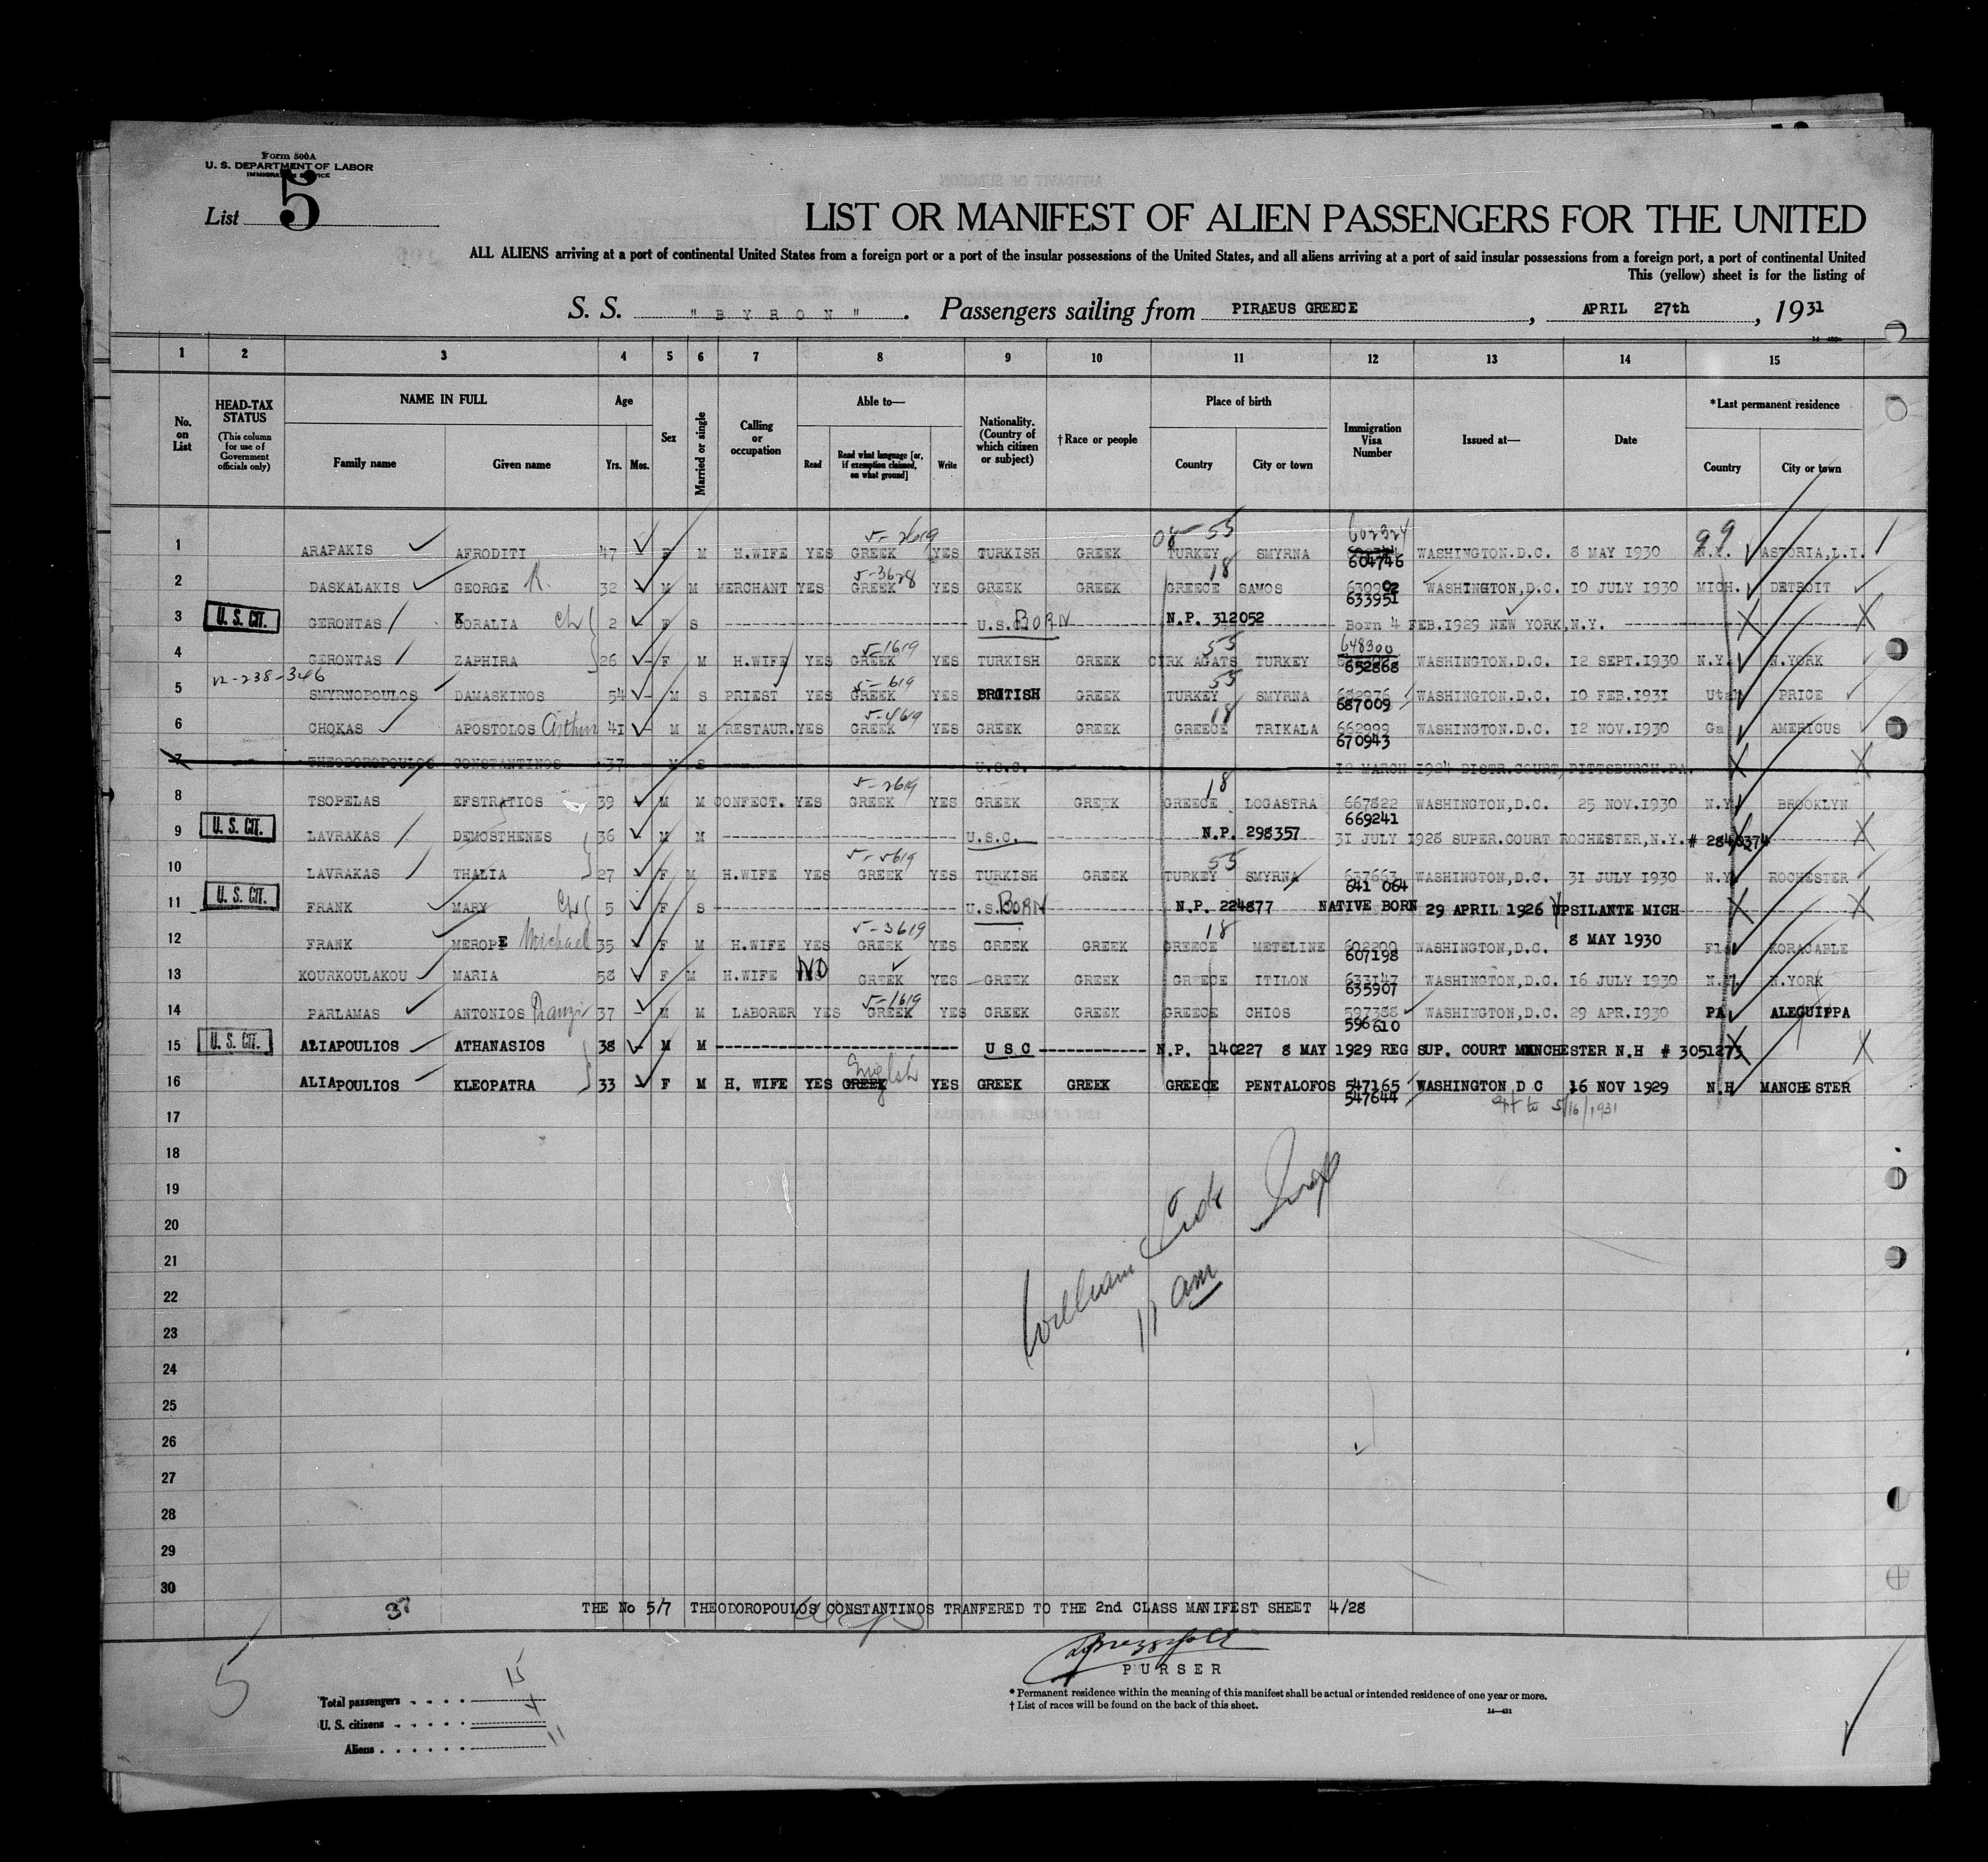 Form 500A
U. S. DEPARTMENT OF LABOR
IMMIGRATION SERVICE
List 5
LIST OR MANIFEST OF ALIEN PASSENGERS FOR THE UNITED
ALL ALIENS arriving at a port of continental United States from a foreign port or a port of the insular possessions of the United States, and all aliens arriving at a port of said insular possessions from a foreign port, a port of continental United
This (yellow) sheet is for the listing of
S. S. "BYRON". Passengers sailing from PIRAEUS GREECE, APRIL 27th, 1931
1 2 3 4 5 6 7 8 9 10 11 12 13 14 15
No. on List
HEAD-TAX STATUS (This column for use of Government officials only)
NAME IN FULL Family name Given name
Age Yrs. Mos.
Sex
Married or single
Calling or occupation
Able to— Read Read what language [or, if exemption claimed, on what ground] Write
Nationality. (Country of which citizen or subject)
†Race or people
Place of birth Country City or town
Immigration Visa Number
Issued at—
Date
*Last permanent residence Country City or town
5-2619 08-55 602324 99
1 ARAPAKIS AFRODITI 47 F M H.WIFE YES GREEK YES TURKISH GREEK TURKEY SMYRNA 604746 WASHINGTON.D.C. 8 MAY 1930 N.Y. ASTORIA,L.I.
5-3628 18
2 DASKALAKIS GEORGE 32 M M MERCHANT YES GREEK YES GREEK GREEK GREECE SAMOS 630902 WASHINGTON,D.C. 10 JULY 1930 MICH. DETROIT
633951
3 U.S. CIT. GERONTAS KORALIA Ch 2 F S U.S. BORN N.P. 312052 Born 4 FEB.1929 NEW YORK,N.Y.
5-1619 55 648300
4 GERONTAS ZAPHIRA 26 F M H.WIFE YES GREEK YES TURKISH GREEK CIRK AGATS TURKEY 652868 WASHINGTON.D.C. 12 SEPT.1930 N.Y. N.YORK
12-238-346 5-619 55
5 SMYRNOPOULOS DAMASKINOS 54 M S PRIEST YES GREEK YES BRITISH GREEK TURKEY SMYRNA 682976 WASHINGTON.D.C. 10 FEB.1931 Utah PRICE
687009
5-4619 18
6 CHOKAS APOSTOLOS Arthur 41 M M RESTAUR. YES GREEK YES GREEK GREEK GREECE TRIKALA 662999 WASHINGTON.D.C. 12 NOV.1930 Ga AMERICUS
670943
7 THEODOROPOULOS CONSTANTINOS 37 M S U.S.C. 12 MARCH 1924 DISTR.COURT,PITTSBURGH.PA.
5-2619 18
8 TSOPELAS EFSTRATIOS 39 M M CONFECT. YES GREEK YES GREEK GREEK GREECE LOGASTRA 667822 WASHINGTON,D.C. 25 NOV.1930 N.Y. BROOKLYN
669241
9 U.S. CIT. LAVRAKAS DEMOSTHENES 36 M M U.S.C. N.P. 298357 31 JULY 1928 SUPER.COURT ROCHESTER,N.Y. # 2840374
5-5619 55
10 LAVRAKAS THALIA 27 F M H.WIFE YES GREEK YES TURKISH GREEK TURKEY SMYRNA 637663 WASHINGTON,D.C. 31 JULY 1930 N.Y. ROCHESTER
641 064
11 U.S. CIT. FRANK MARY Ch 5 F S U.S. BORN N.P. 224877 NATIVE BORN 29 APRIL 1926 YPSILANTE MICH
5-3619 18
12 FRANK MEROPE Michael 35 F M H.WIFE YES GREEK YES GREEK GREEK GREECE METELINE 602200 WASHINGTON,D.C. 8 MAY 1930 Fla KORACABLE
607198
13 KOURKOULAKOU MARIA 58 F M H.WIFE NO GREEK YES GREEK GREEK GREECE ITILON 633147 WASHINGTON,D.C. 16 JULY 1930 N.Y. N.YORK
635907
5-1619
14 PARLAMAS ANTONIOS 37 M M LABORER YES GREEK YES GREEK GREEK GREECE CHIOS 597388 WASHINGTON,D.C. 29 APR.1930 PA ALEGUIPPA
596610
15 U.S. CIT. ALIAPOULIOS ATHANASIOS 38 M M U S C N.P. 140227 8 MAY 1929 REG SUP. COURT MANCHESTER N.H # 3051273
English
16 ALIAPOULIOS KLEOPATRA 33 F M H. WIFE YES GREEK YES GREEK GREEK GREECE PENTALOFOS 547165 WASHINGTON D C 16 NOV 1929 N.H MANCHESTER
547644 5/16/1931
17
18
19
20
21
22
23
24
25
26
27
28
29
30
William
11 am
THE No 5/7 THEODOROPOULOS CONSTANTINOS TRANFERED TO THE 2nd CLASS MANIFEST SHEET 4/28
PURSER
5
Total passengers . . . . 15
U. S. citizens . . . . . 4
Aliens . . . . . . 11
* Permanent residence within the meaning of this manifest shall be actual or intended residence of one year or more.
† List of races will be found on the back of this sheet.
14—421